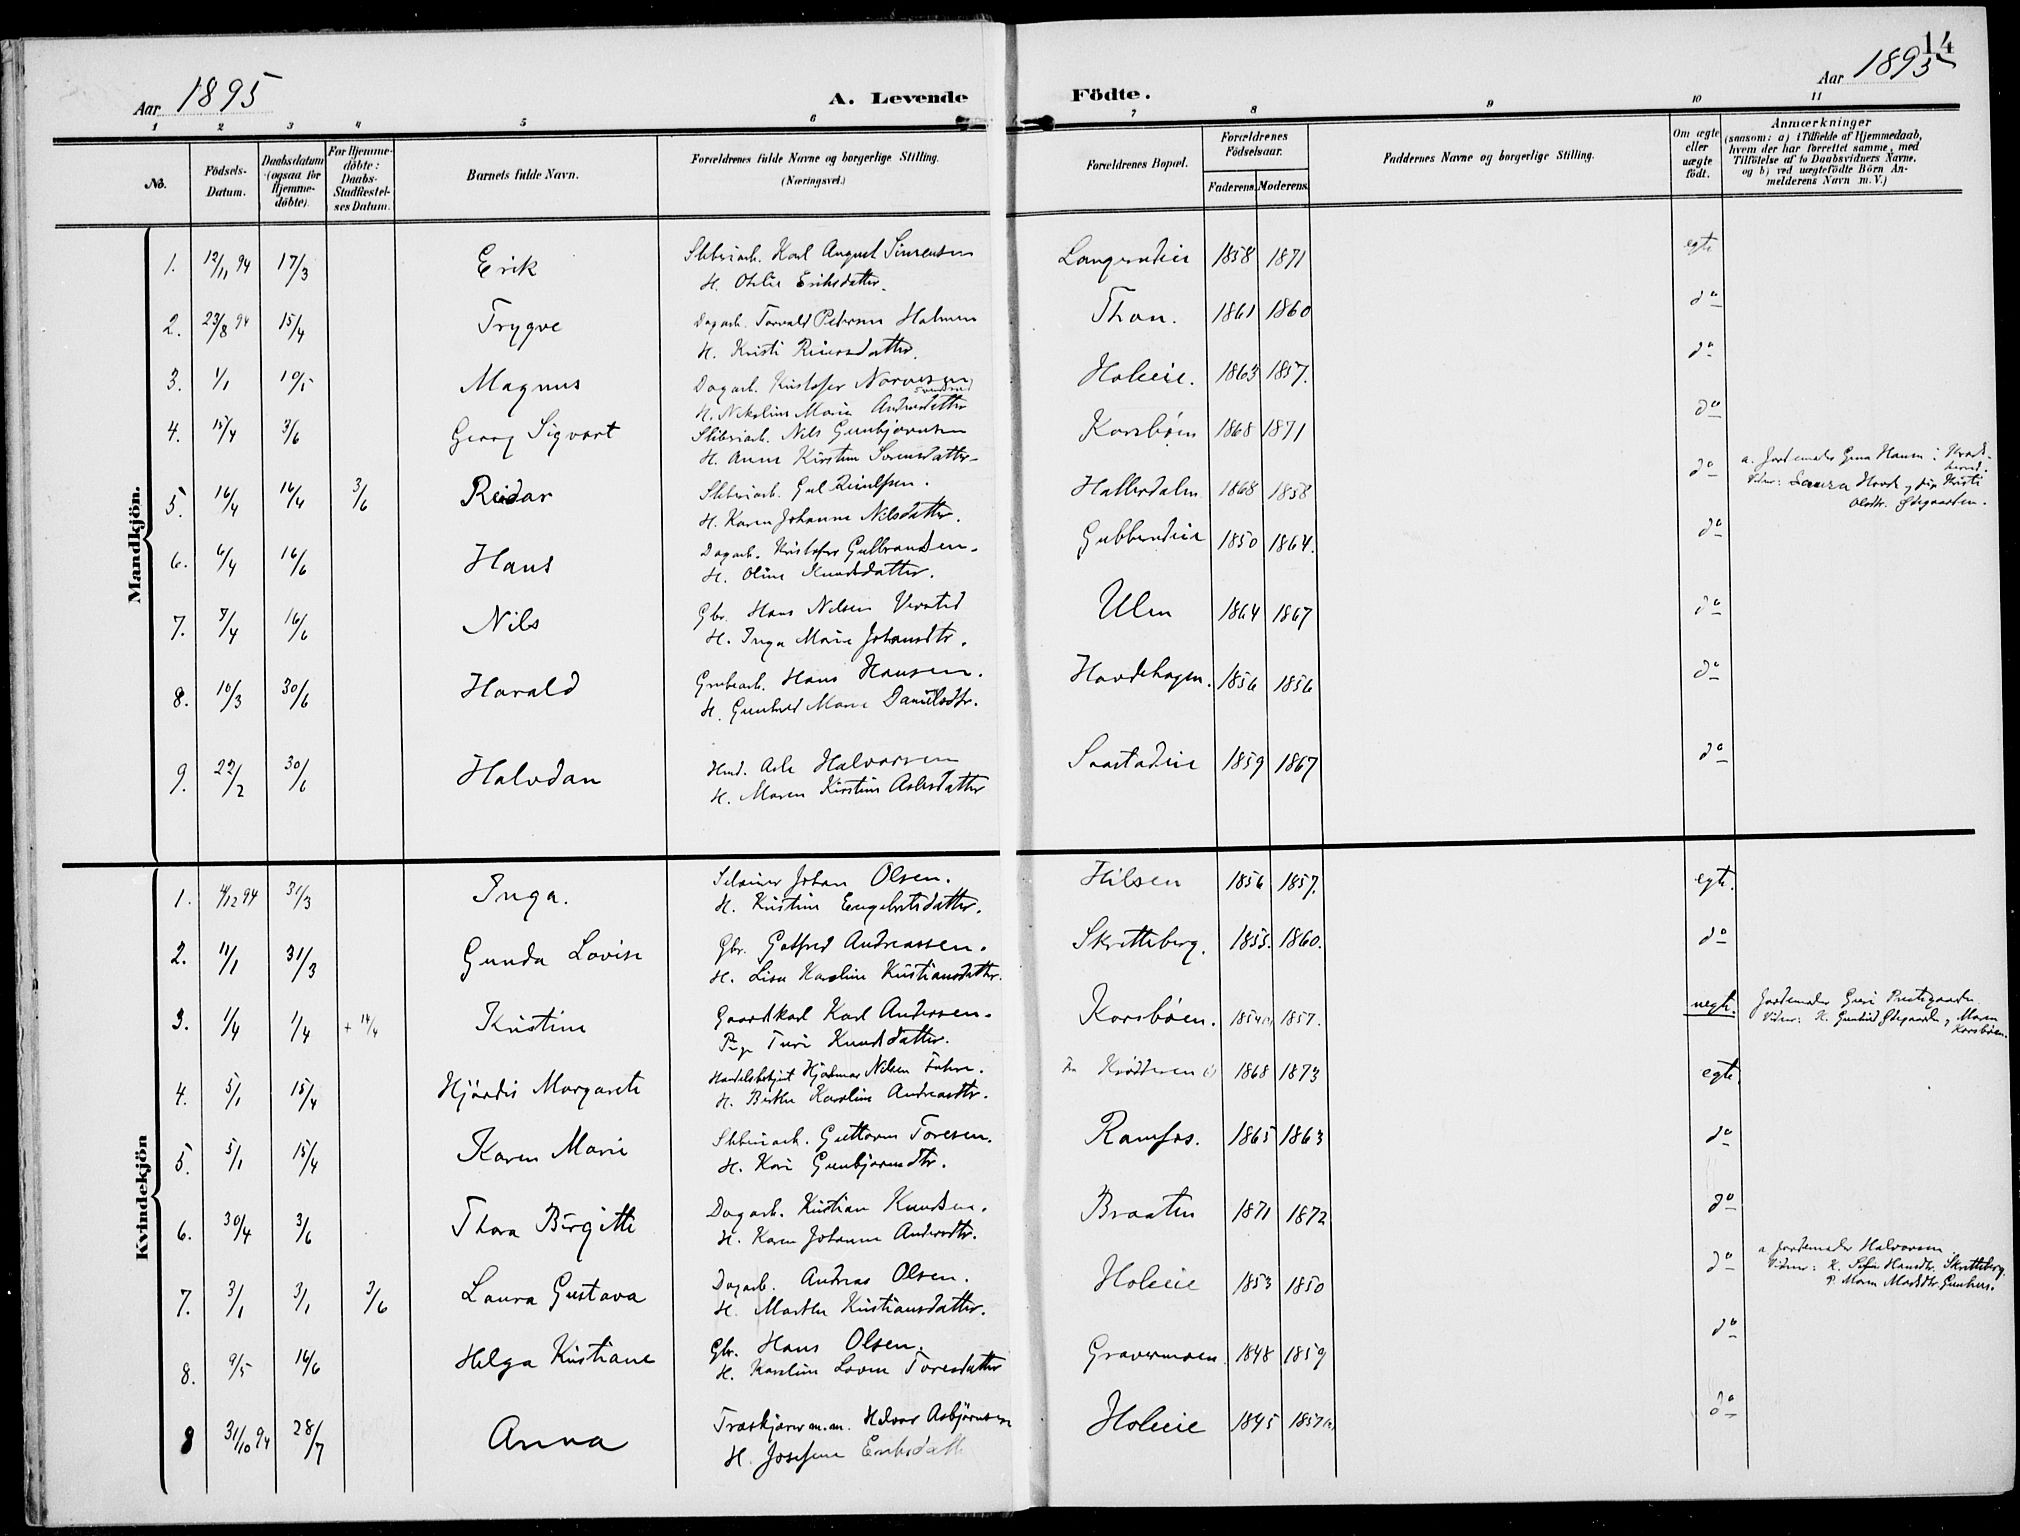 14
Aar 1895
A. Levende Födte.
Aar 1895
1 2 3 4 5 6 7 8 9 10 11
No.
Födsels-Datum.
Daabsdatum (ogsaa for Hjemme-döbte).
For Hjemme-döbte: Daabs-Stadfæstel-ses Datum.
Barnets fulde Navn.
Forældrenes fulde Navne og borgerlige Stilling.
(Næringsvei.)
Forældrenes Bopæl.
Forældrenes Födselsaar.
Faderens. Moderens.
Faddernes Navne og borgerlige Stilling.
Om ægte eller uægte födt.
Anmærkninger
(saasom: a) i Tilfælde af Hjemmedaab,
hvem der har forrettet samme, med
Tilföielse af to Daabsvidners Navne,
og b) ved uægtefödte Börn An-
melderens Navn m. V.)
Mandkjön.
1. 12/1 94 17/3 Erik Sliberiarb. Karl August Simensen Langerudeie 1858 1871 egte
H. Otilie Eriksdatter.
2. 23/8 94 15/4 Trygve Dagarb. Torvald Petersen Holmen Thon. 1861 1860 do
H. Kristi Reiersdatter.
3. 1/1 10/5 Magnus Dagarb. Kristofer Narvesen Holeie. 1863 1857. do
H. Nikoline Marie Andersdatter
4. 15/4 3/6 Georg Sigvart Sliberiarb. Nils Gunbjørnsen Korsbøen 1868 1871 do
H. Anne Kirstine Sørensdatter
5. 16/4 16/4 3/6 Reidar Sliberiarb. Gul Reiulfsen. Hallerdalen 1868 1858 do
H. Karen Johanne Nilsdatter.
a. Jordemoder Gina Hansen i
Vidner: Laura Hovde og Kristi
Olsdtr. Ødegaarden.
6. 6/4 16/6 Hans Dagarb. Kristofer Gulbrandsen. Gubberudeie 1850 1864. do
H. Oline Knudsdatter.
7. 7/4 16/6 Nils Gbr. Hans Nilsen Ulen 1864 1867 do
H. Inga Marie Johansdtr.
8. 10/3 30/6 Harald Grubearb. Hans Hansen. Hovdehagen. 1856 1856 do
H. Gunhild Marie Danielsdtr.
9. 22/2 30/6 Halvdan Hmd. Asle Halvorsen Saastadeie 1859 1867 do
H. Maren Kirstine Aslesdatter
Kvindekjön
1. 4/12 94 31/3 Inga. Seleier Johan Olsen. Hilsen 1856 1857. egte.
H. Kristine Engebretsdatter.
2. 11/1 31/3 Gunda Lovise Gbr. Gotfred Andreassen. Skretteberg. 1855. 1860. do
H. Lise Karoline Kristiansdatter.
3. 1/4 1/4 + 14/4 Kristine Gaardkarl Karl Andersen. Korsbøen. 1854 1857. uegte.
Pige Turi Knudsdatter.
Jordemoder Guri Prestegaarden
Vidner: K. Gunhild Ødegaarden og Maren
Korsbøen.
4. 5/1 15/4 Hjördis Margarete Handelsbetjent Hjalmar Nilsen Fra Krødderen 1868 1873 egte.
H. Berthe Karoline Andreasdtr.
5. 5/1 15/4 Karen Marie Sliberiarb. Guttorm Toresen. Ramfos. 1865 1863 do
H. Kari Gunbjørnsdtr.
6. 30/4 3/6 Thora Birgitte Dagarb. Kristian Knudsen. Braaten 1871 1872 do
H. Karen Johanne Andersdtr.
7. 3/1 3/1 3/6 Laura Gustava Dagarb. Andreas Olsen. Holeie 1853 1850 do
H. Marthe Kristiansdatter.
a. Jordemoder Halvorsen
Vidner: K. Sofie Hansdtr. Skretteberg.
P. Maren Gunhus.
8. 9/5 16/6 Helga Kristiane Gbr. Hans Olsen. Gravermoen. 1848 1859 do
H. Karoline Lovise Toresdatter
8 31/10 94 28/7 Anna Træskjærer m.m. Halvor Asbjørnsen Holeie 1845 1857 do
H. Josefine Eriksdatt